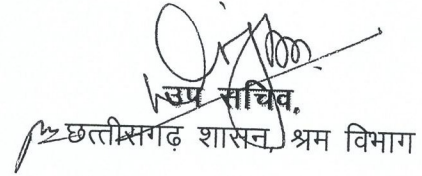 उप सचिव,
छत्तीसगढ़ शासन, श्रम विभाग